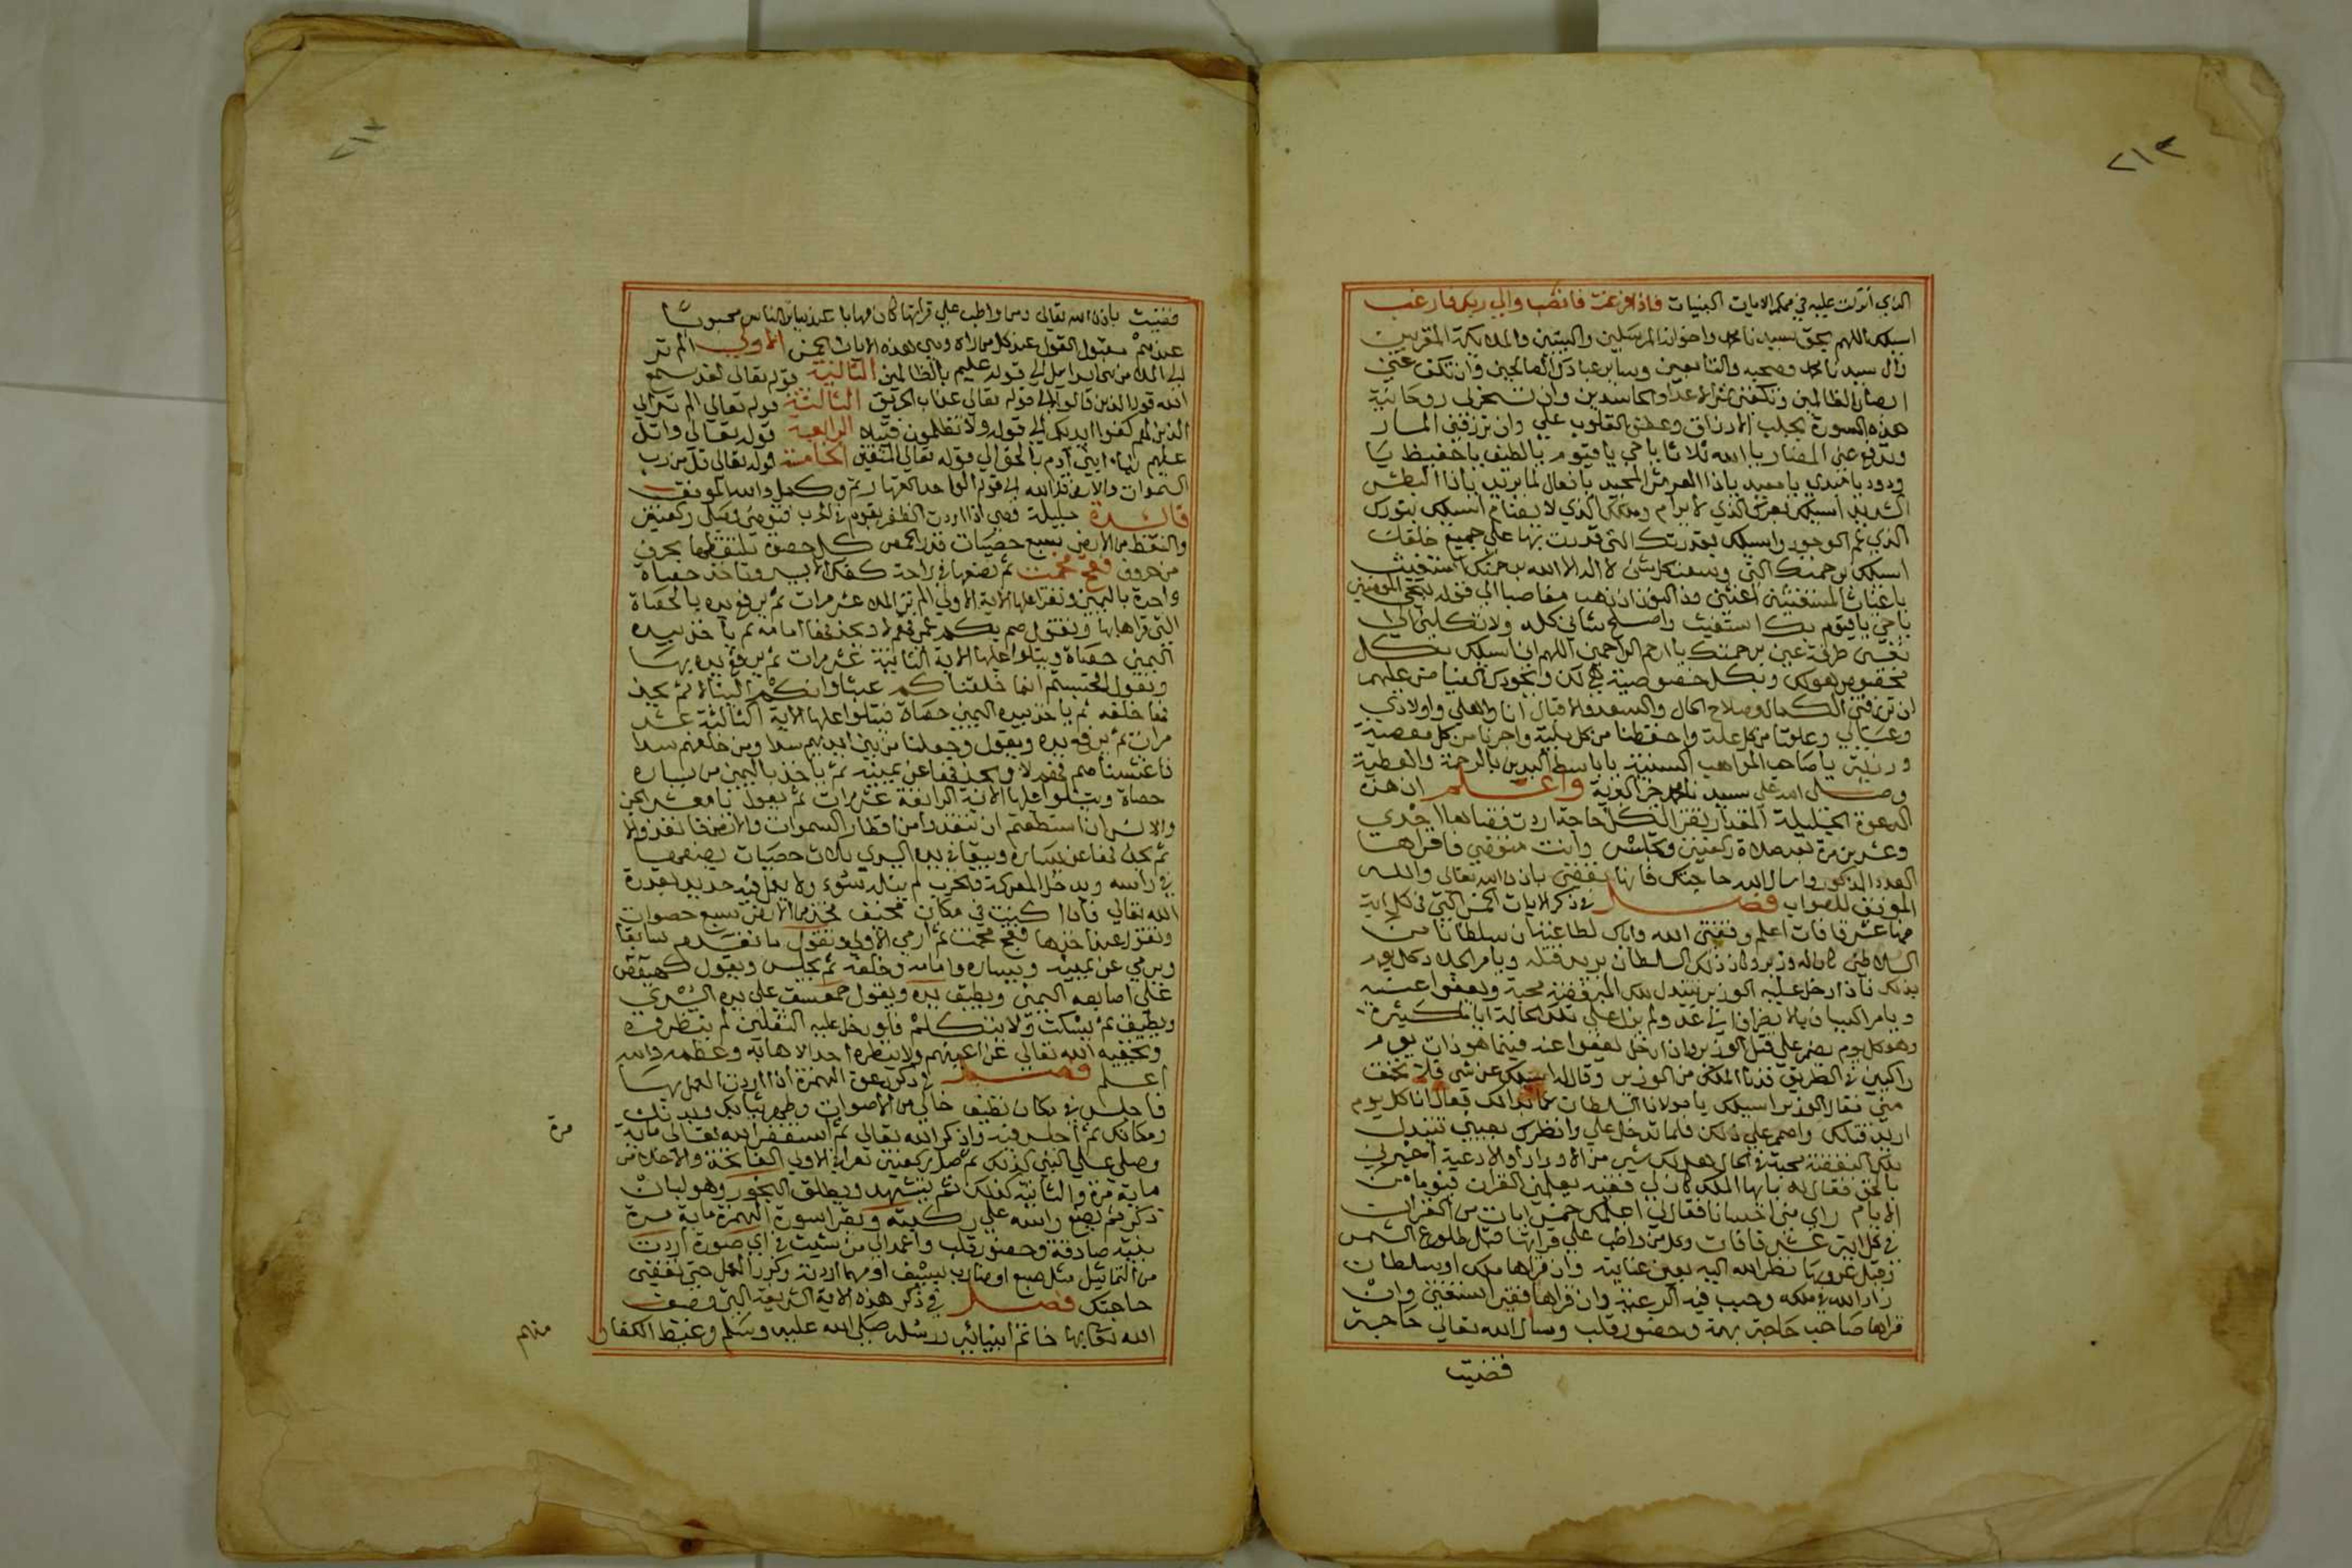 ٢١٣
الذي انزلت عليه في محكم الايات البينات فاذا فرغت فانصب والي ربك فارغب
اسيلك اللهم بحق سيدنا محمد واخوانه المرسلين والنبيين والملايكة المقربين
وال سيدنا محمد وصحبه والتابعين وساير عبادك الصالحين وان تكف عني
ابصار الظالمين وتكفني شر الاعدا والحاسدين وان تسخر لي روحانية
هذه السورة بجلب الارزاق وعطف القلوب علي وان ترزقني المسار
وتدفع عني المضار يا الله ثلاثا يا حي يا قيوم يا لطيف يا حفيظ يا
ودود يا مبدي يا معيد يا ذا العرش المجيد يا فعال لما يريد يا ذا البطش
الشديد اسيلك بعزك الذي لا يرام وملكك الذي لا يضام اسيلك بنورك
الذي عم الوجود واسيلك بقدرتك التي قدرت بها علي جميع خلقك
اسيلك برحمتك التي وسعت كل شي لا اله الا الله برحمتك استغيث
يا غياث المستغيثين اغثني وذا النون اذ ذهب مغاضبا الي قوله ننجي المومنين
يا حي يا قيوم بك استغيث واصلح شاني كله ولا تكلني الي
نفسي طرفة عين برحمتك يا ارحم الراحمين اللهم اني اسيلك بكل
ان ترزقني الكمال وصلاح الحال والسعد والاقبال انا واهلي واولادي
وعيالي وعافنا من كل علة واحفظنا من كل بلية واجرنا من كل معصية
ورزية يا صاحب المواهب السنية يا باسط اليدين بالرحمة والعطية
وصلي الله علي سيدنا محمد خير البرية واعلم ان هذه
الدعوة الجليلة المقدار تقرا لكل حاجة اردت قضاها احدي
وعشرين مرة بعد صلاة ركعتين وتجلس وانت متوضي فاقراها
العدد المذكور واسال الله حاجتك فانها تقضي باذن الله تعالي والله
الموفق للصواب فصل في ذكر الايات الخمس التي في كل اية
منها عشر قافات اعلم وفقني الله واياك لطاعته ان سلطانا من
السلاطين كان له وزير وكان ذلك السلطان يريد قتله ويامر الجلاد كل يوم
بذلك فاذا دخل عليه الوزير تتبدل تلك المبغوضة محبة ويعفوا عنه
وهو كل يوم يصر علي قتل الوزير واذا دخل يعفوا عنه فبينما هو ذات يوم
راكبين في الطريق فدنا الملك من الوزير وقال له اسيلك عن شي فلا تخف
مني فقال الوزير اسيلك يا مولانا السلطان عما بدالك فقال انا كل يوم
اريد قتلك واصمم علي ذلك فلما تدخل علي وانظرك بعيني تتبدل
تلك البغضة محبة في الحال هل لك شي من الاوراد او الادعية اخبرني
بالحق فقال له يا ايها الملك كان لي فقيه يعلمني القران فيوما من
الايام راي مني احسانا فقال لي اعلمك خمس ايات من القران
في كل اية عشر قافات وكل من واظب علي قراتها قبل طلوع الشمس
وقبل غروبها نظر الله اليه بعين عنايته وان قراها ملك او سلطان
زاد الله في ملكه وحبب فيه الرعية وان قراها فقير استغني وان
قراها صاحب حاجة بهمة وحضور قلب وسال الله تعالي حاجة
قضيت
قضيت باذن الله تعالي ومن واظب علي قراتها كان مهابا عند ساير الناس محبوبا
عندهم مقبول القول عند كل من راه وهي هذه الايات الخمس الاولي الم تر
الي الملا من بني اسرايل الي قوله عليم بالظالمين الثانية قوله تعالي لقد سمع
الله قول الذين قالوا الي قوله تعالي عذاب الحريق الثالثة قوله تعالي الم تر الي
الذين قيل لهم كفوا ايديكم الي قوله ولا تظلمون فتيلا الرابعة قوله تعالي واتل
عليهم نبا ابني ادم بالحق الي قوله تعالي المتقين الخامسة قوله تعالي قل من رب
السموات والارض قل الله الي قوله الواحد القهار تم وكمل والله الموفق
فايدة جليلة وهي اذا اردت الظفر بقوم في الحرب فتوضي وصل ركعتين
والتقط من الارض سبع حصيات قدر الحمص كل حصوة تلتقطها بحرف
من حروف فقج مخمت ثم تضعها في راحة كفك الايسر وتاخذ حصاة
واحدة باليمين وتقرا عليها الاية الاولي الم تر الي الملا عشر مرات ثم يرفع يده بالحصاة
التي قراها بها ويقول صم بكم عمي فهم لا ويحذفها امامه ثم ياخذ بيده
اليمين حصاة ويتلوا عليها الاية الثانية عشر مرات ثم يرفع يده بها
ويقول افحسبتم انما خلقناكم عبثا وانكم الينا لا ثم يحذ
فها خلفه ثم ياخذ بيده اليمين حصاة فيتلوا عليها الاية الثالثة عشر
مرات ثم يرفع يده ويقول وجعلنا من بين ايديهم سدا ومن خلفهم سدا
فاغشيناهم فهم لا ويحذفها عن يمينه ثم ياخذ باليمين من يساره
حصاة ويتلوا عليها الاية الرابعة عشر مرات ثم يقول يا معشر الجن
والانس ان استطعتم ان تنفذوا من اقطار السموات والارض فانفذوا لا
ثم يحذفها عن يساره ويبقي في يده اليسري ثلاث حصيات يضعها
في راسه ويدخل المعركة والحرب لم ينله سوء ولا يعمل فيه حديد بقدرة
الله تعالي فاذا كنت في مكان مخيف فخذ من الارض سبع حصوات
وتقول عند اخذها فقج مخمت ثم ارمي الاولي وتقول ما تقدم سابقا
ويرمي عن يمينه ويساره وامامه وخلفه ثم يجلس ويقول كهيعص
علي اصابعه اليمني ويطبق يده ويقول حمعسق علي يده اليسري
ويطبق ثم يسكت ولا يتكلم فلو دخل عليه الثقلين لم ينظروه
ويخفيه الله تعالي عن اعينهم ولا ينظره احد الا هابه وعظمه والله
اعلم فصل في ذكر دعوة الهمزة اذا اردت العمل بها
فاجلس في مكان نظيف خالي من الاصوات وطهر ثيابك وبدنك
ومكانك ثم اجلس فيه واذكر الله تعالي ثم استغفر الله تعالي ماية
مرة
وصلي علي النبي كذلك ثم صل ركعتين تقرا في الاولي الفاتحة والاخلاص
ماية مرة والثانية كذلك ثم تتشهد ويطلق البخور وهو لبان
ذكر ثم يضع راسه علي ركبته ويقرا سورة الهمزة ماية مرة
بنية صادقة وحضور قلب واعمد الي من شيت في اي صورة اردت
من التماثيل مثل سبع او ضارب بسيف او مهما اردته وكرر العمل حتي تقضي
حاجتك فصل في ذكر هذه الاية الشريفة التي وصف
الله تعالي بها خاتم انبيائه ورسله صلي الله عليه وسلم وغيظ الكفار
منهم